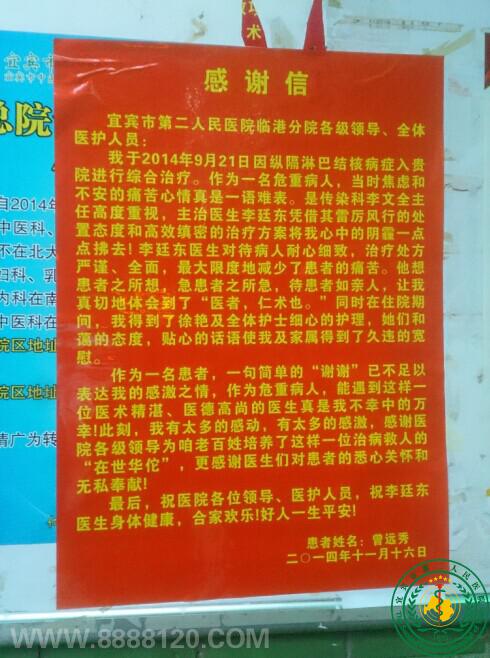 感谢信
宜宾市第二人民医院临港分院各级领导、全体
医护人员：
我于2014年9月21日因纵隔淋巴结核病症入贵
院进行综合治疗。作为一名危重病人，当时焦虑和
不安的痛苦心情真是一语难表。是传染科李文全主
任高度重视，主治医生李廷东凭借其雷厉风行的处
置态度和高效缜密的治疗方案将我心中的阴霾一点
点拂去!李廷东医生对待病人耐心细致，治疗处方
严谨、全面，最大限度地减少了患者的痛苦。他想
患者之所想，急患者之所急，待患者如亲人，让我
真切地体会到了“医者，仁术也。”同时在住院期
间，我得到了徐艳及全体护士细心的护理，她们和
蔼的态度，贴心的话语使我及家属得到了久违的宽
慰。
作为一名患者，一句简单的“谢谢”已不足以
表达我的感激之情，作为危重病人，能遇到这样一
位医术精湛、医德高尚的医生真是我不幸中的万
幸!此刻，我有太多的感动，有太多的感激，感谢医
院各级领导为咱老百姓培养了这样一位治病救人的
“在世华佗”，更感谢医生们对患者的悉心关怀和
无私奉献!
最后，祝医院各位领导、医护人员，祝李廷东
医生身体健康，合家欢乐!好人一生平安!
患者姓名：曾远秀
二〇一四年十一月十六日
术
宜宾市
总院
自2014年
中医科、
不在北大
妇科、乳
内科在南
中医科在
院区地址
院区地址
请广为转
WWW.8888120.COM